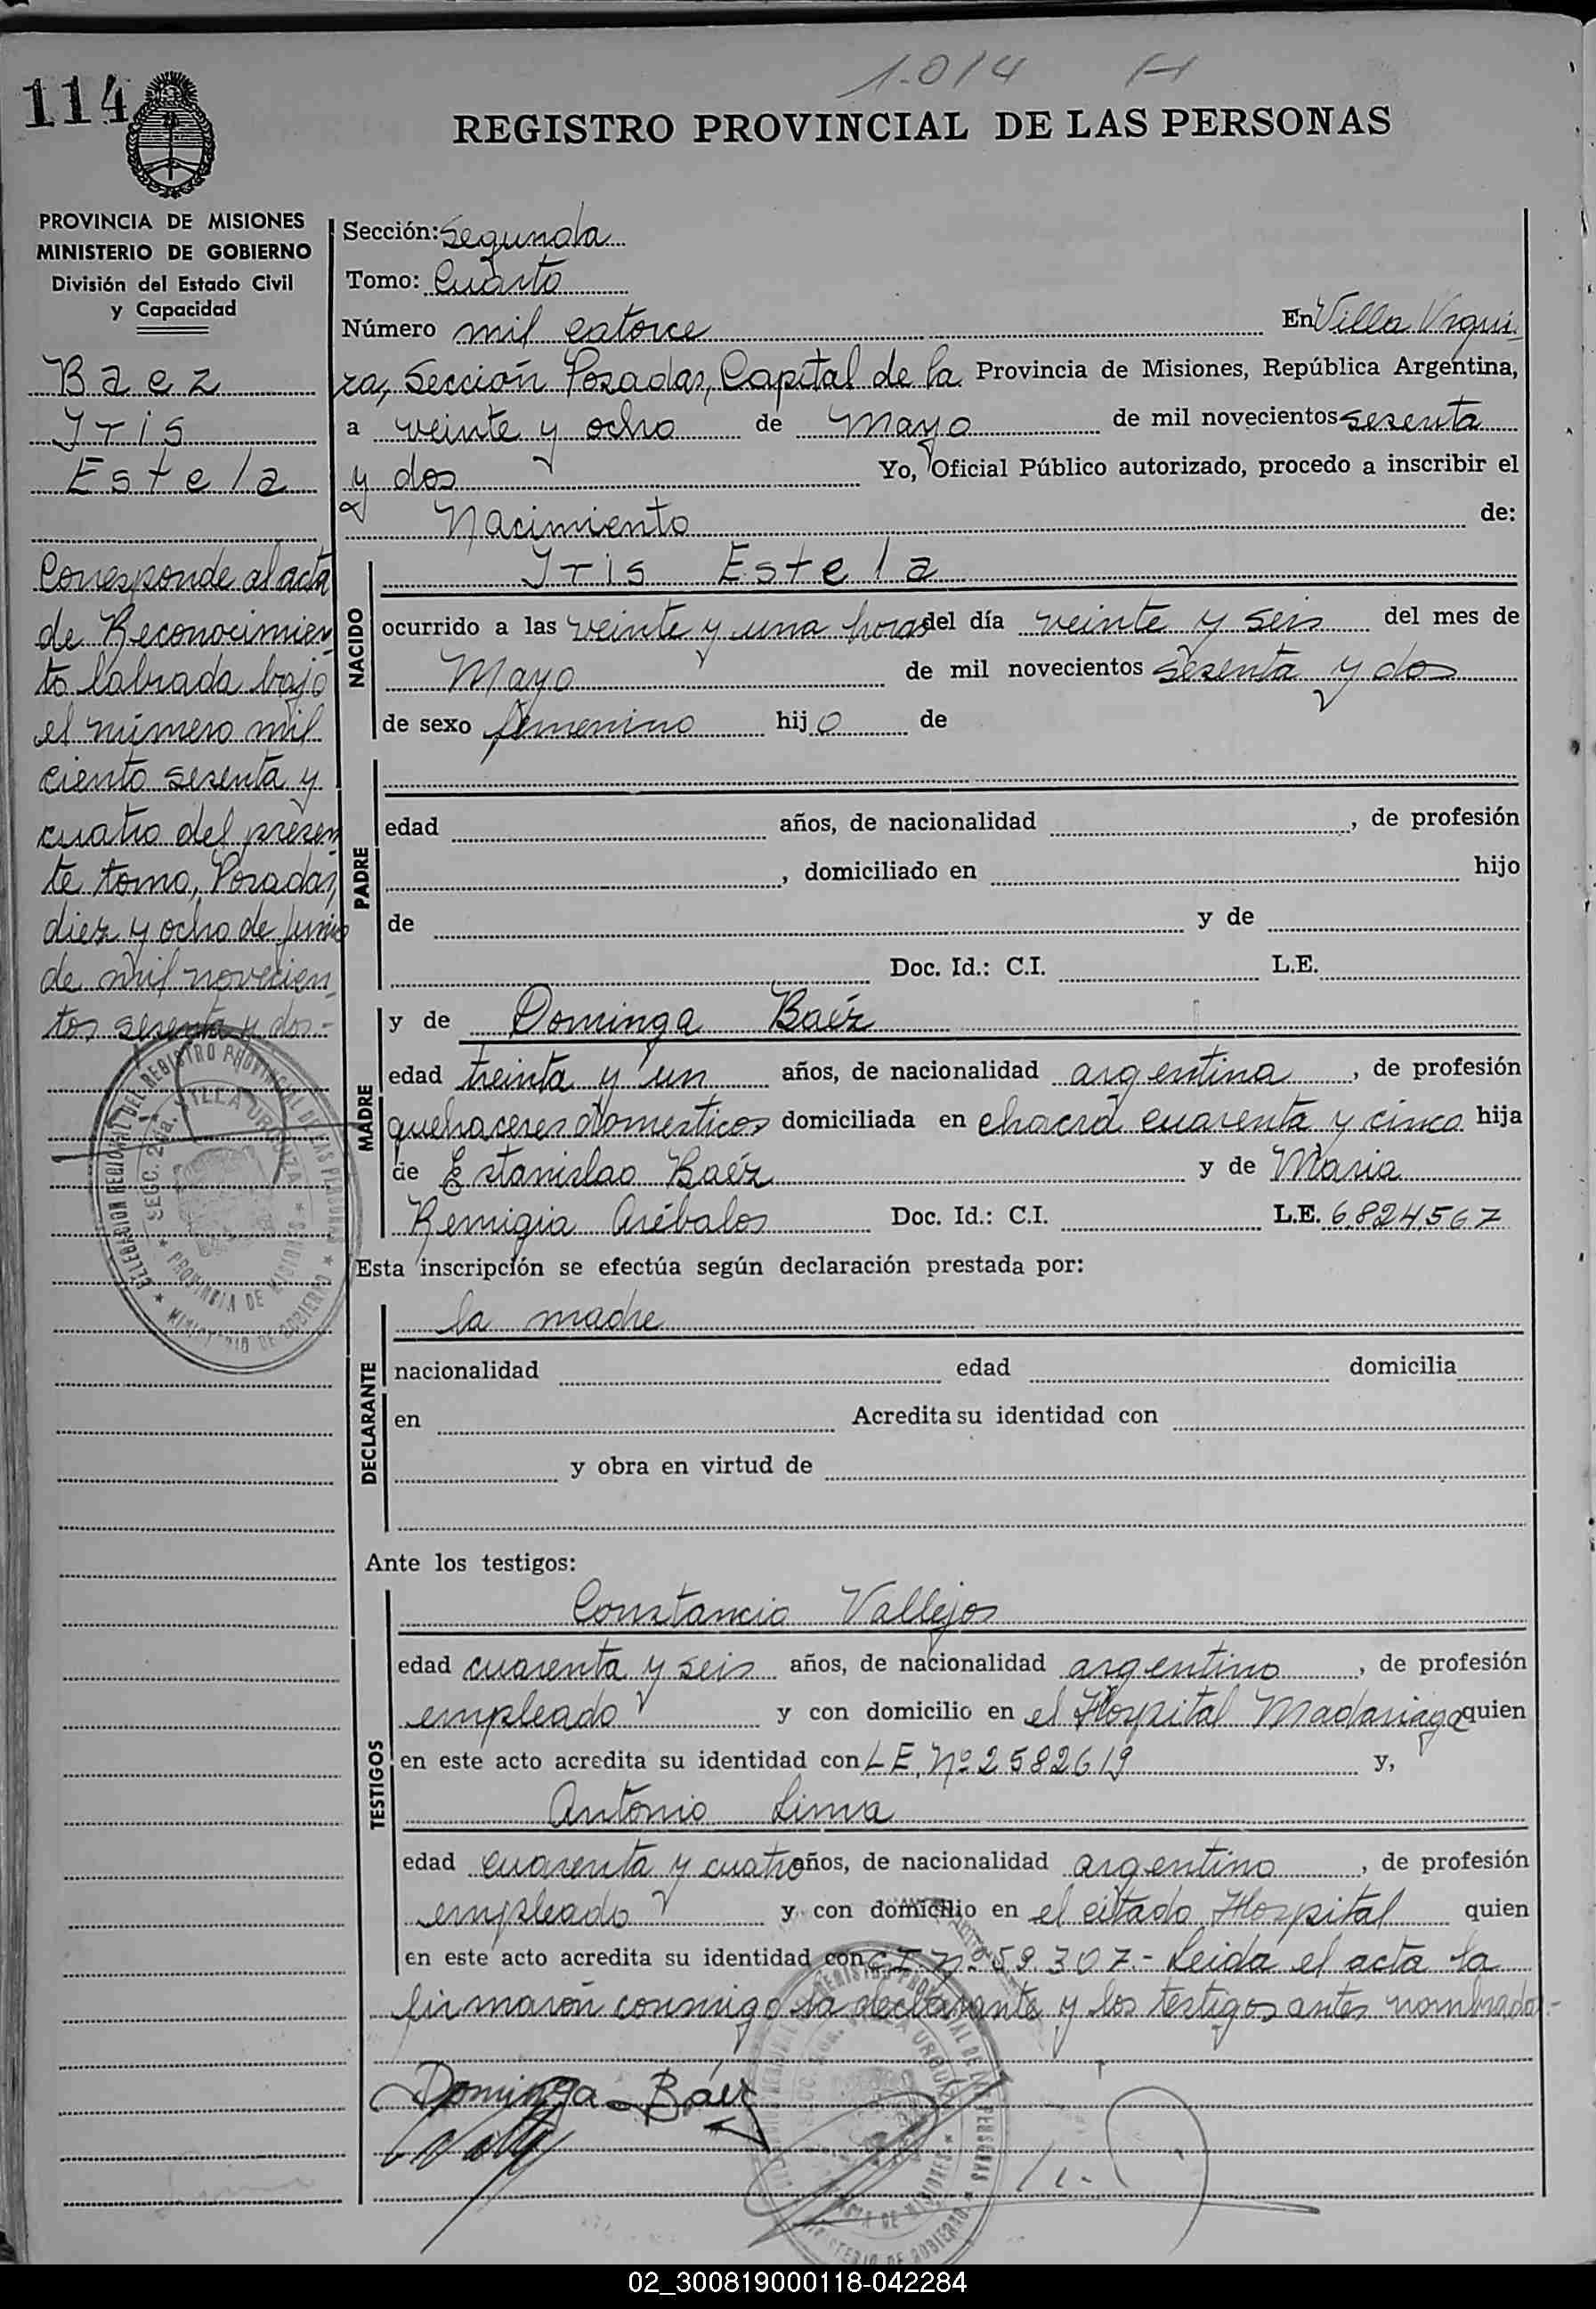 1.014 H
114
REGISTRO PROVINCIAL DE LAS PERSONAS
PROVINCIA DE MISIONES
MINISTERIO DE GOBIERNO
División del Estado Civil
y Capacidad
Baez
Iris
Estela
Corresponde al acta
de Reconocimien
to labrada bajo
el número mil
ciento sesenta y
cuatro del presen
te tomo, Posadas,
diez y ocho de Junio
de mil novecien
tos sesenta y dos.-
Sección: Segunda
Tomo: Cuarto
Número mil catorce En Villa Urqui
za, Sección Posadas, Capital de la Provincia de Misiones, República Argentina,
a veinte y ocho de Mayo de mil novecientos sesenta
y dos Yo, Oficial Público autorizado, procedo a inscribir el
Nacimiento de:
NACIDO
Iris Estela
ocurrido a las veinte y una horas del día veinte y seis del mes de
Mayo de mil novecientos sesenta y dos
de sexo femenino hijo de
PADRE
edad años, de nacionalidad , de profesión
, domiciliado en hijo
de y de
Doc. Id.: C.I. L.E.
MADRE
y de Dominga Baéz
edad treinta y un años, de nacionalidad argentina, de profesión
quehaceres domesticos domiciliada en chacra cuarenta y cinco hija
de Estanislao Baéz y de Maria
Remigia Arébalos Doc. Id.: C.I. L.E. 6.824.567
Esta inscripción se efectúa según declaración prestada por:
DECLARANTE
la madre
nacionalidad edad domicilia
en Acredita su identidad con
y obra en virtud de
Ante los testigos:
TESTIGOS
Constancio Vallejos
edad cuarenta y seis años, de nacionalidad argentino, de profesión
empleado y con domicilio en el Hospital Madariaga quien
en este acto acredita su identidad con L E. Nº 2582619 y,
Antonio Lima
edad cuarenta y cuatro años, de nacionalidad argentino, de profesión
empleado y con domicilio en el citado Hospital quien
en este acto acredita su identidad con C.I. nº 59.307.- Leida el acta la
firmaron conmigo la declarante y los testigos antes nombrados.-
Dominga Báez
02_300819000118-042284